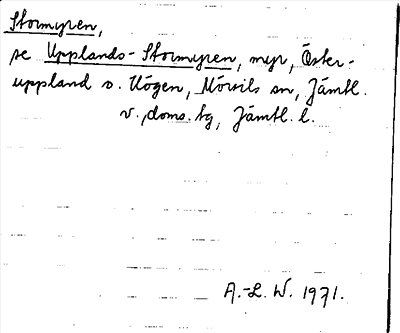 Stormyren,
se Upplands-Stormyren, myr, Öster-
uppland o. Kögen, Mörsils sn, Jämtl.
v. doms. tg, Jämtl. l.
A.-L. W. 1971.